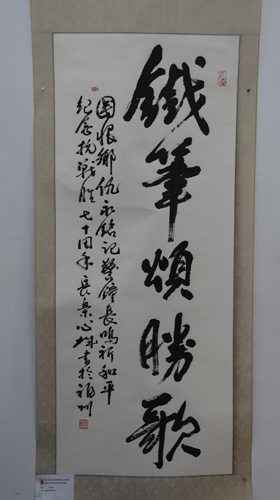 鐵筆頌勝歌
國恨鄉仇永銘記警鐘長鳴祈和平
紀念抗戰勝七十周年長樂心城書於福州